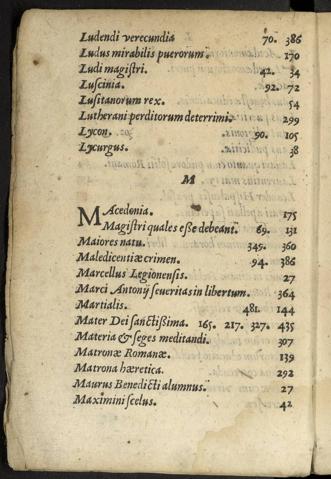 Ludendi verecundia 70. 386
Ludus mirabilis puerorum. 170
Ludi magiſtri. 42. 34
Luſcinia. 92. 72
Luſitanorum rex. 54
Lutherani perditorum deterrimi. 299
Lycon. 90. 105
Lycurgus. 38
M
MAcedonia. 175
Magiſtri quales eſſe debeant. 69. 131
Maiores natu. 349. 360
Maledicentiæ crimen. 94. 386
Marcellus Legionenſis. 27
Marci Antonij ſeueritas in libertum. 364
Martialis. 481. 144
Mater Dei ſanctiſsima. 165. 217. 327. 435
Materia & ſeges meditandi. 307
Matronæ Romanæ. 139
Matrona hæretica. 292
Maurus Benedicti alumnus. 27
Maximini ſcelus. 42